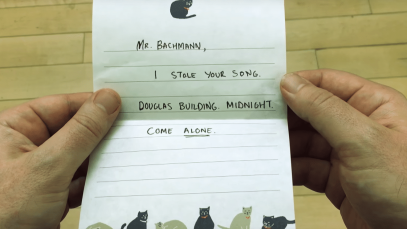 MR. BACHMANN,
I STOLE YOUR SONG.
DOUGLAS BUILDING. MIDNIGHT.
COME ALONE.